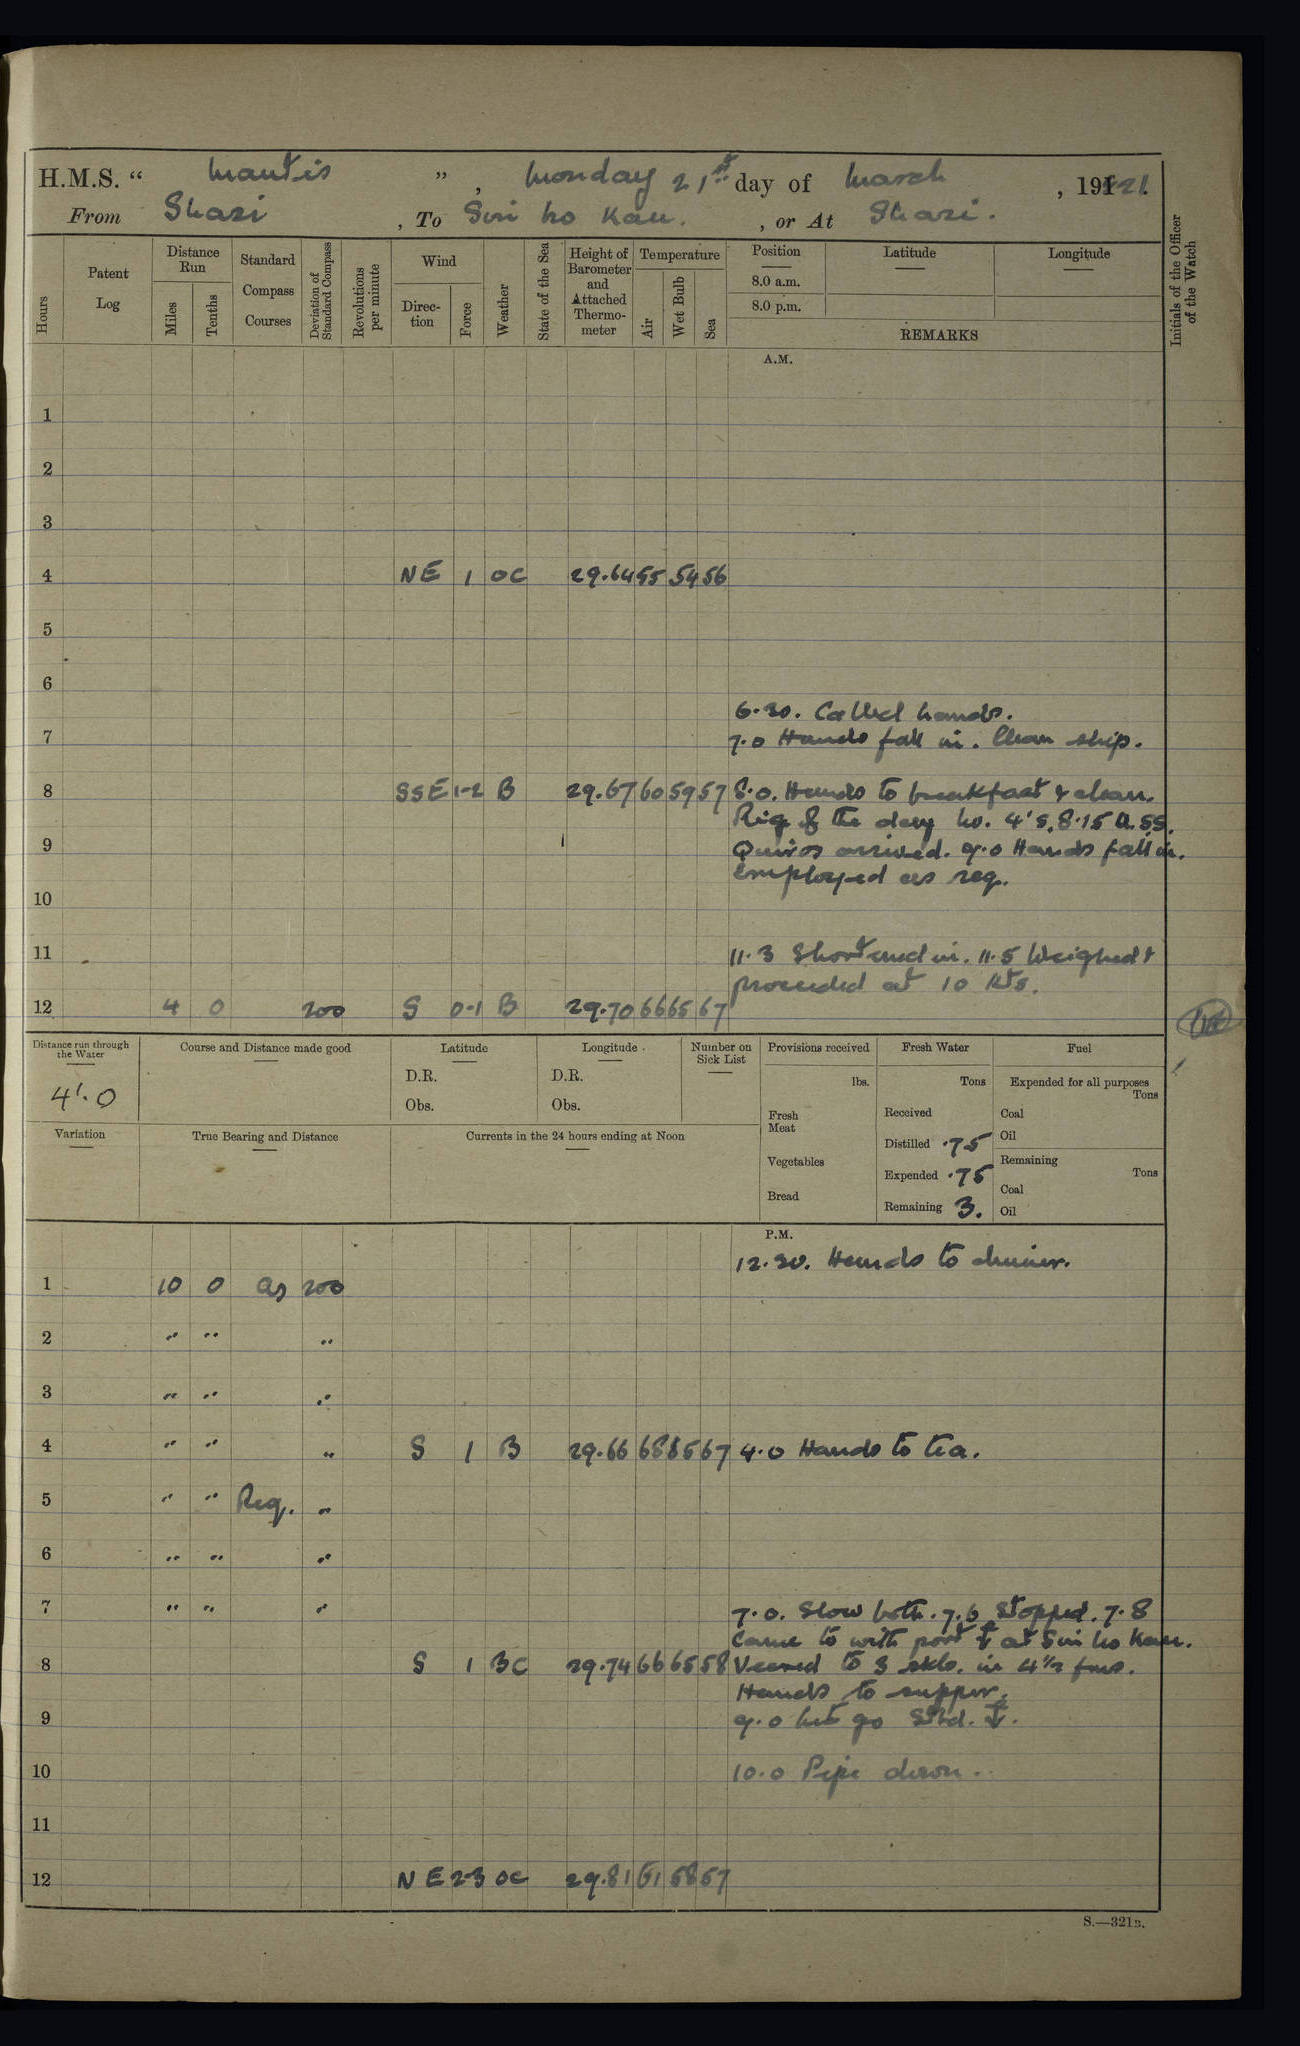 H.M.S. " Mantis ", Monday 21st day of March, 1921.
From Shasi, To Sin ho Kau., or At Shasi.
Hours
Patent Log
Distance Run
Miles
Tenths
Standard Compass Courses
Deviation of Standard Compass
Revolutions per minute
Wind
Direction
Force
Weather
State of the Sea
Height of Barometer and Attached Thermometer
Temperature
Air
Wet Bulb
Sea
Position
8.0 a.m.
8.0 p.m.
Latitude
Longitude
REMARKS
Initials of the Officer of the Watch
A.M.
1
2
3
4 NE 1 OC 29.64 55 54 56
5
6
6.30. Called hands.
7 7.0 Hands fall in. Clean ship.
8 SSE 1-2 B 29.67 60 59 57 8.0. Hands to breakfast & clean.
Rig of the day No. 4's. 8.15 A. SS.
9 Quiros arrived. 9.0 Hands fall in.
Employed as req.
10
11 11.3 Shortened in. 11.5 Weighed &
proceeded at 10 Kts.
12 4 0 200 S 0-1 B 29.70 66 65 67
Distance run through the Water
4'.0
Course and Distance made good
Latitude
D.R.
Obs.
Longitude
D.R.
Obs.
Number on Sick List
Provisions received
lbs.
Fresh Meat
Vegetables
Bread
Fresh Water
Tons
Received
Distilled .75
Expended .75
Remaining 3.
Fuel
Expended for all purposes
Tons
Coal
Oil
Remaining
Tons
Coal
Oil
Variation
True Bearing and Distance
Currents in the 24 hours ending at Noon
P.M.
12.30. Hands to dinner.
1 10 0 as 200
2 " " "
3 " " "
4 " " " S 1 B 29.66 68 67 4.0 Hands to tea.
5 " " Req. "
6 " " "
7 " " " 7.0. Slow both. 7.6 Stopped. 7.8
Came to with port ⚓ at Sin ho Kau.
8 S 1 BC 29.74 66 65 58 Veered to 3 skls. in 4½ fms.
Hands to supper.
9 9.0 let go Stbd. ⚓.
10 10.0 Pipe down.
11
12 NE 2-3 OC 29.81 61 58 57
S.—321B.